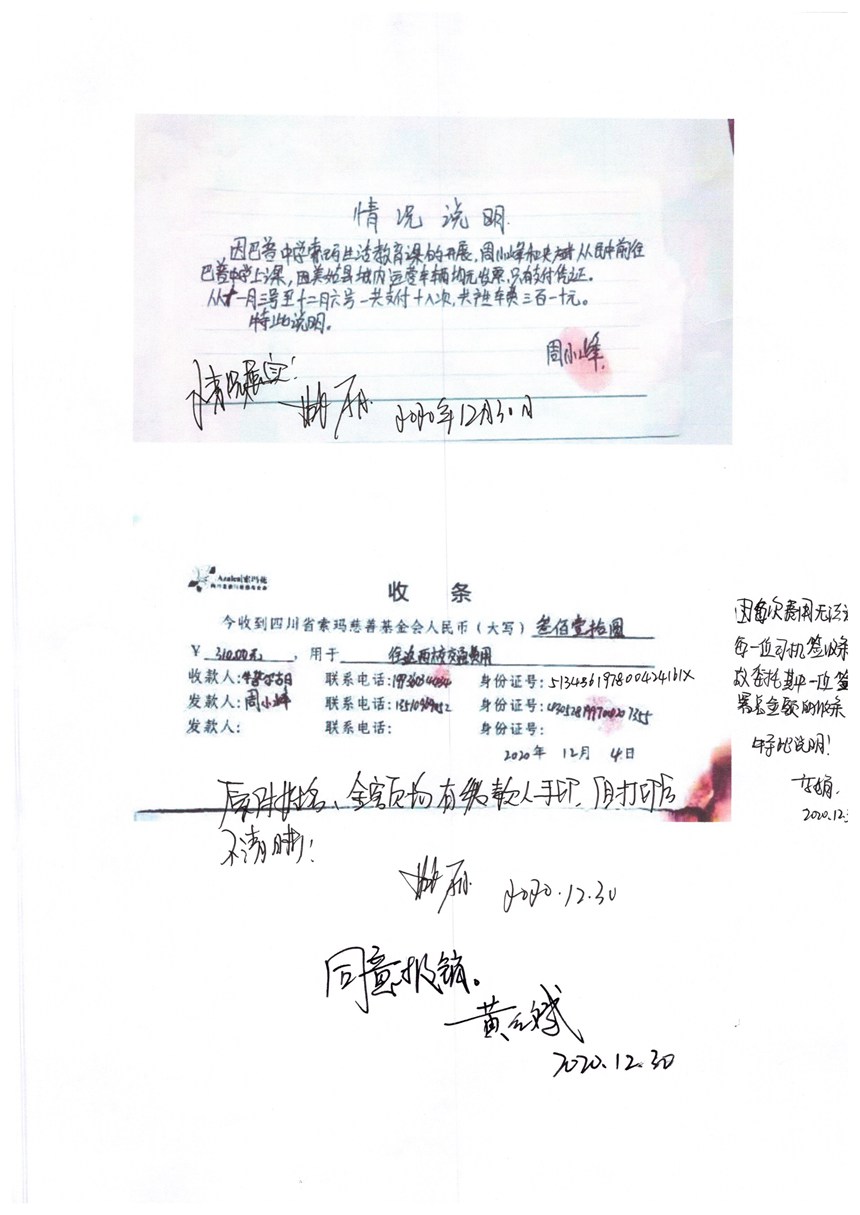 情况说明
因巴普中学索玛生活教育课的开展，周小峰和 从民中前往
巴普中学上课，因美姑县城内运营车辆均无发票，只有支付凭证。
从十一月三号至十二月六号一共支付十八次，共 车费三百一十元。
特此说明。
周小峰
情况属实！
2020年12月30日
Azalea|索玛花
收 条
今收到四川省索玛慈善基金会人民币（大写） 叁佰壹拾圆
￥ 310.00元， 用于 往返两校交通费用
收款人： 联系电话： 身份证号：513436197800424161X
发款人：周小峰 联系电话： 身份证号：
发款人： 联系电话： 身份证号：
2020年 12月 4日
因每次费用无法
每一位司机签收条
故委托其中一位签
署总金额的收条
特此说明！
2020.12.3
姓名、金额均有 款人手印，因打印后
不清晰！
2020.12.30
同意报销。
黄 斌
2020.12.30